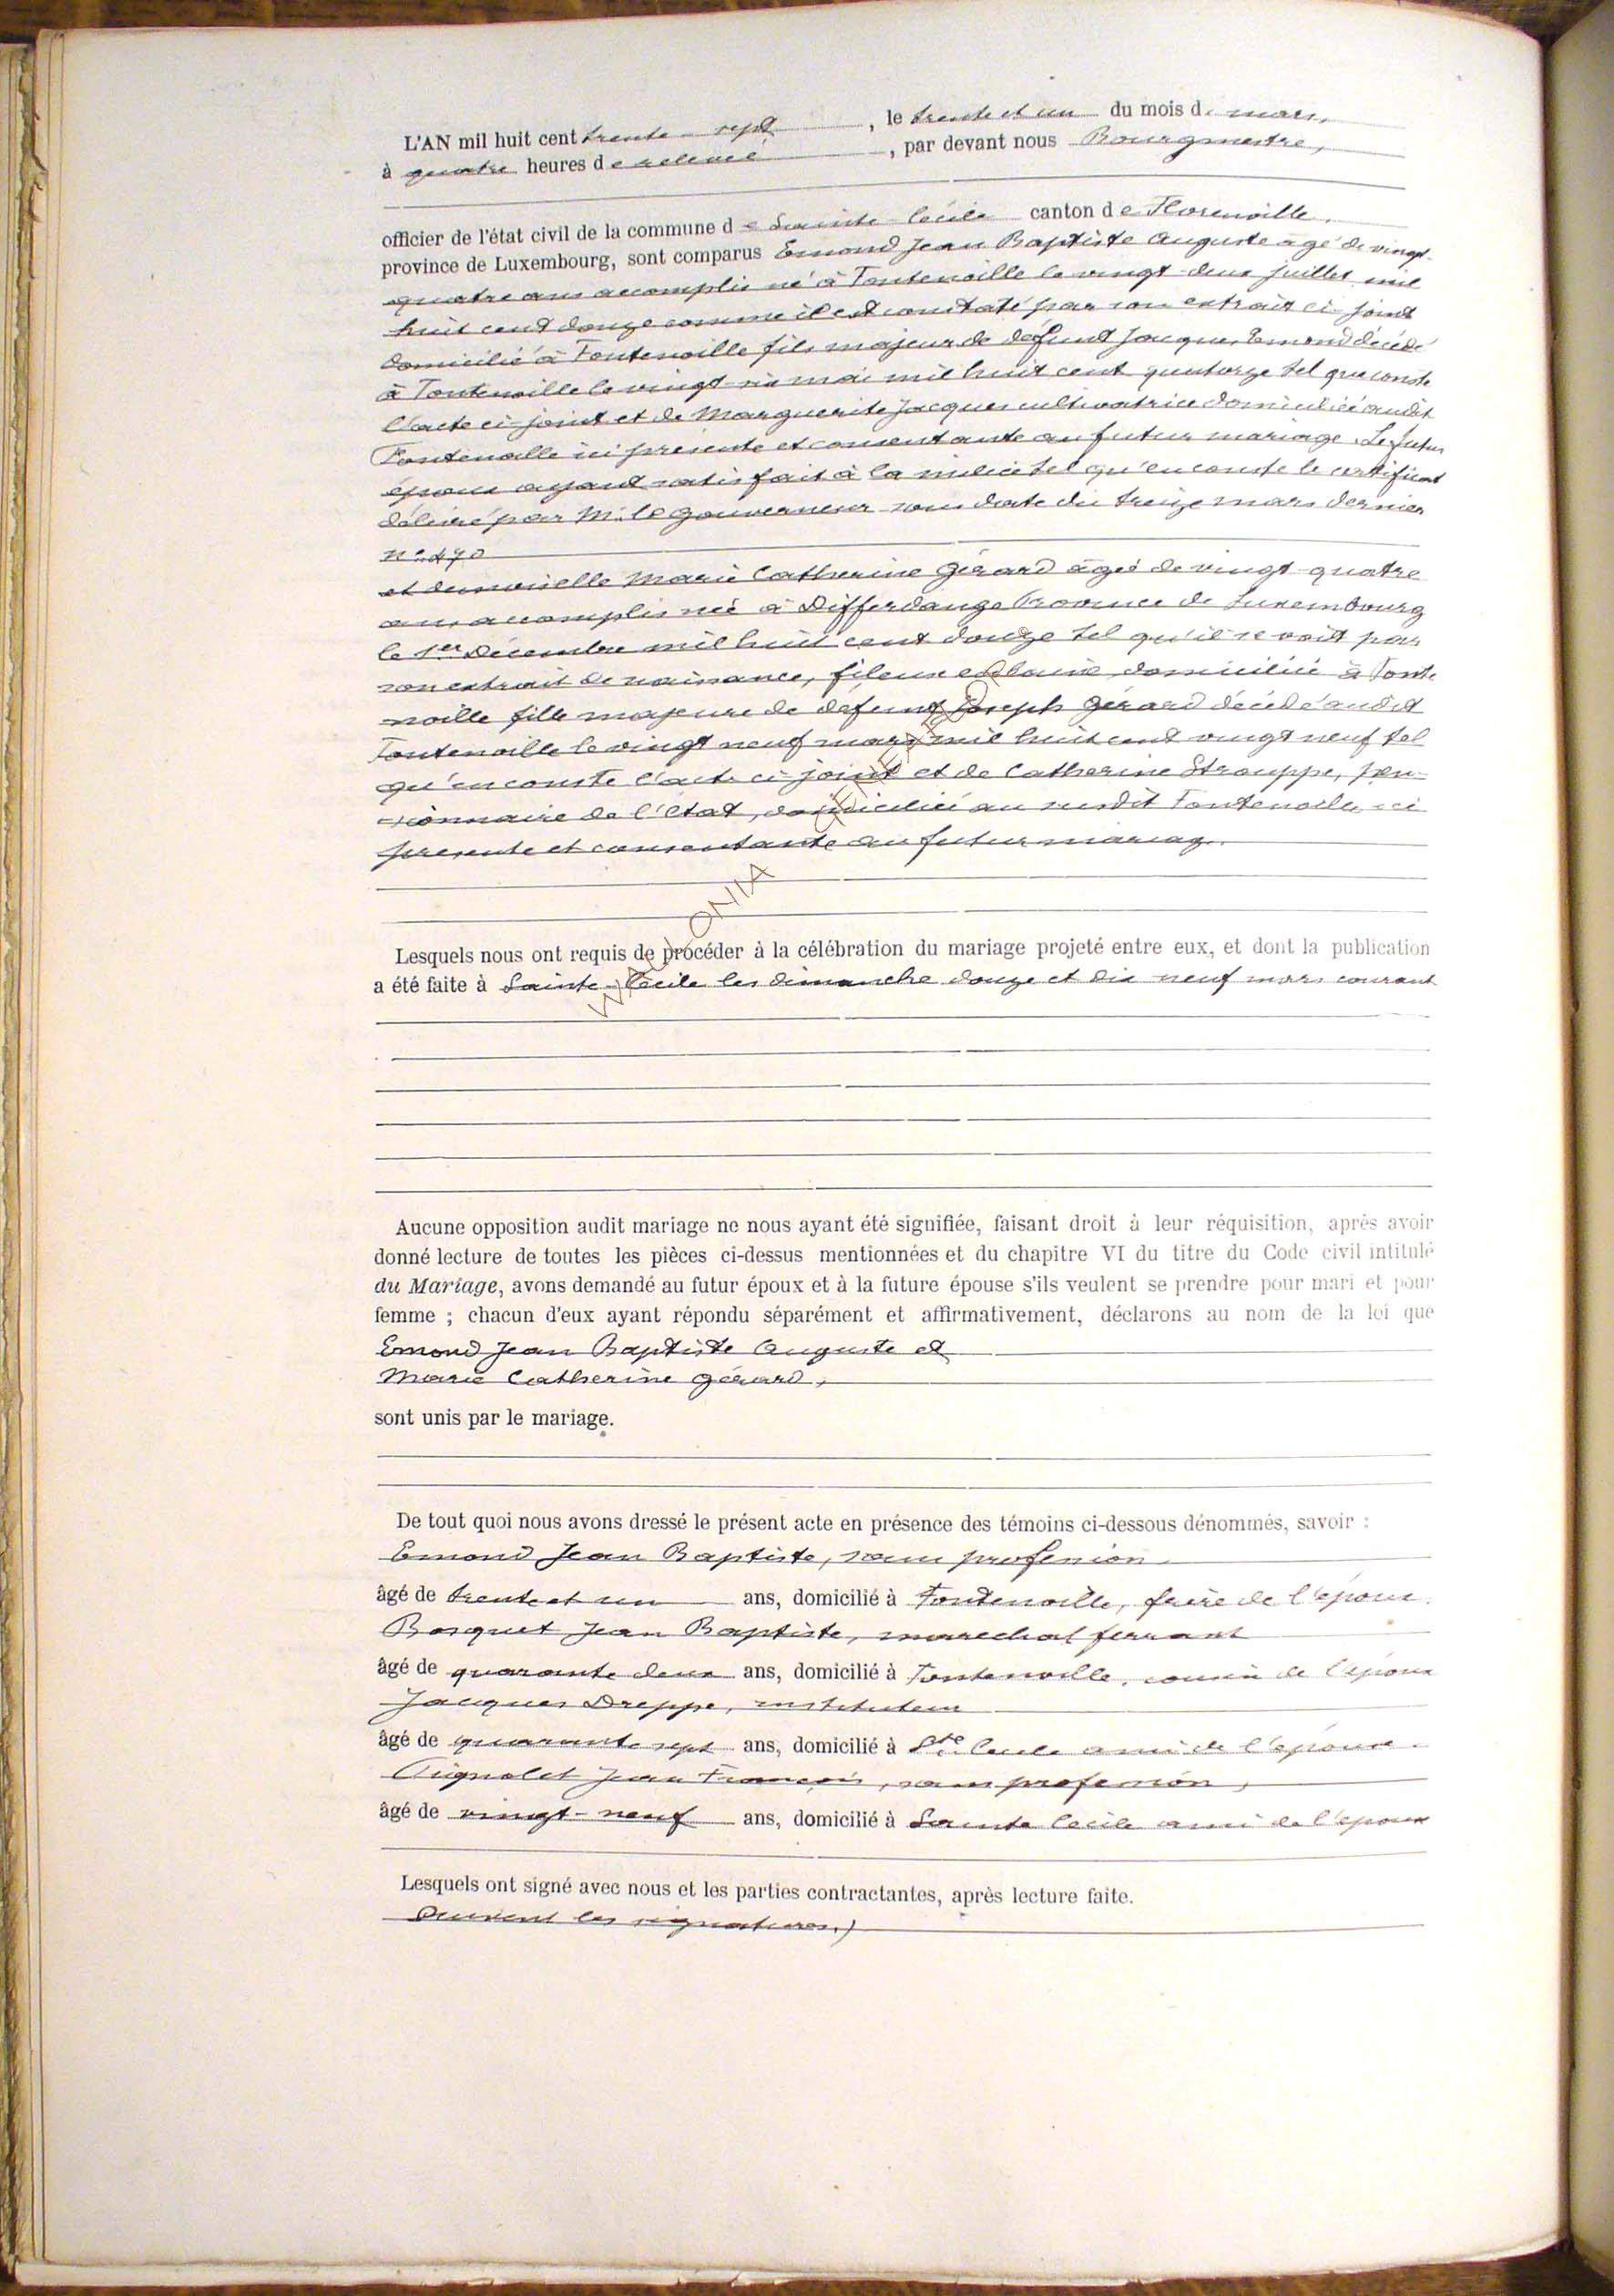 L'AN mil huit cent trente-sept, le trente et un du mois de mars,
à quatre heures de relevée, par devant nous Bourgmestre,
officier de l'état civil de la commune de Sainte-Cécile canton de Florenville,
province de Luxembourg, sont comparus Emond Jean Baptiste Auguste âgé de vingt-
quatre ans accomplis né à Fontenoille le vingt-deux juillet mil
huit cent douze comme il est constaté par son extrait ci-joint
domicilié à Fontenoille fils majeur de défunt Jacques Emond décédé
à Fontenoille le vingt-six mai mil huit cent quatorze tel que conste
l'acte ci-joint et de Marguerite Jacques cultivatrice domiciliée audit
Fontenoille ici présente et consentante au futur mariage. Le futur
époux ayant satisfait à la milice tel qu'en conste le certificat
délivré par M. le gouverneur sous date du treize mars dernier
n° 470
et demoiselle Marie Catherine Gérard âgée de vingt-quatre
ans accomplis née à Differdange Province de Luxembourg
le 1er Décembre mil huit cent douze tel qu'il se voit par
son extrait de naissance, fileuse en laine domiciliée à Fonte
noille fille majeure de défunt Joseph Gérard décédé audit
Fontenoille le vingt neuf mars mil huit cent vingt neuf tel
qu'en conste l'acte ci-joint et de Catherine Strouppe, pen-
sionnaire de l'état, domiciliée au susdit Fontenoille ici
présente et consentante au futur mariage.
WALLONIA
Lesquels nous ont requis de procéder à la célébration du mariage projeté entre eux, et dont la publication
a été faite à Sainte-Cécile les dimanche douze et dix neuf mars courant
Aucune opposition audit mariage ne nous ayant été signifiée, faisant droit à leur réquisition, après avoir
donné lecture de toutes les pièces ci-dessus mentionnées et du chapitre VI du titre du Code civil intitulé
du Mariage, avons demandé au futur époux et à la future épouse s'ils veulent se prendre pour mari et pour
femme ; chacun d'eux ayant répondu séparément et affirmativement, déclarons au nom de la loi que
Emond Jean Baptiste Auguste et
Marie Catherine Gérard,
sont unis par le mariage.
De tout quoi nous avons dressé le présent acte en présence des témoins ci-dessous dénommés, savoir :
Emond Jean Baptiste, sans profession
âgé de trente et un ans, domicilié à Fontenoille, frère de l'époux.
Bosquet Jean Baptiste, marechal ferrant
âgé de quarante deux ans, domicilié à Fontenoille, cousin de l'époux
Jacques Dreppe, instituteur
âgé de quarante sept ans, domicilié à Ste Cecile ami de l'épouse.
Jean François, sans profession,
âgé de vingt-neuf ans, domicilié à Sainte Cecile ami de l'epoux
Lesquels ont signé avec nous et les parties contractantes, après lecture faite.
Suivent les signatures.)